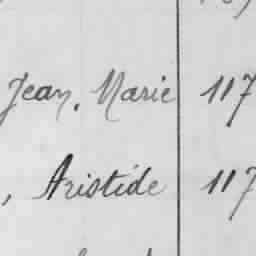 Jean, Marie 117
, Aristide 117